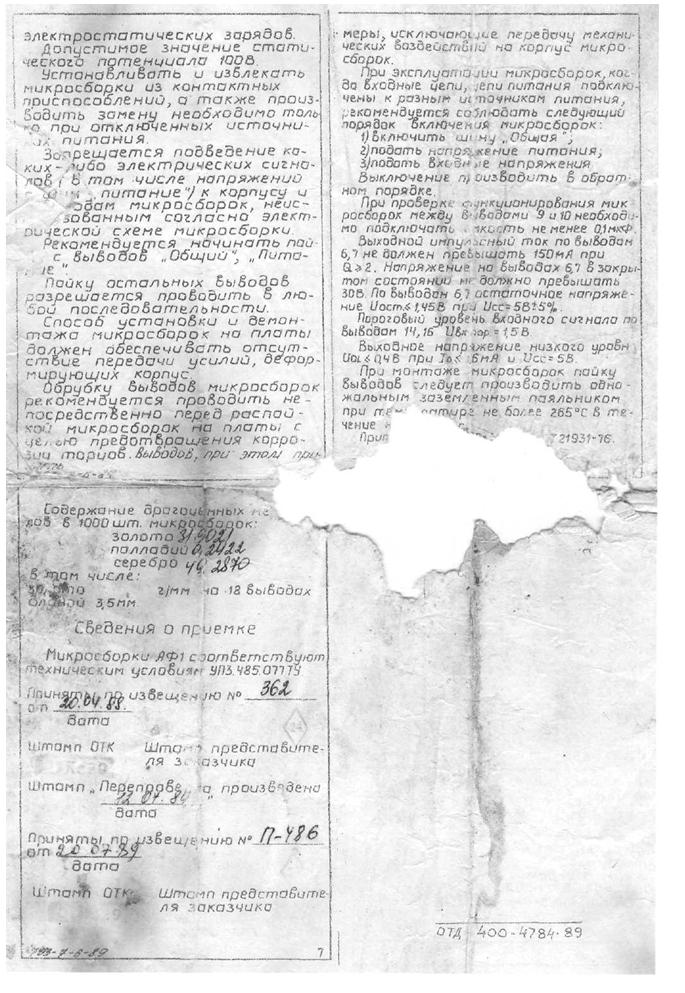 электростатических зарядов.
Допустимое значение стати-
ческого потенциала 100В.
Устанавливать и извлекать
микросборки из контактных
приспособлений, а также произ-
водить замену необходимо толь
ко при отключенных источни-
ках питания.
Запрещается подведение ка-
ких-либо электрических сигна-
лов (в том числе напряжений
питание") к корпусу и
водам микросборок, неис-
зованным согласно элект-
рической схеме микросборки.
Рекомендуется начинать пай-
с выводов „Общий", „Пита-
ие"
Пайку остальных выводов
разрешается проводить в лю-
бой последовательности.
Способ установки и демон-
тажа микросборок на платы
должен обеспечивать отсут-
ствие передачи усилий, дефор-
мирующих корпус.
Обрубку выводов микросборок
рекомендуется проводить не-
посредственно перед распай-
кой микросборок на платы с
целью предотвращения корро-
зии торцов. выводов, при этом при-
меры, исключающие передачу механи-
ческих воздействий на корпус микро-
сборок.
При эксплуатации микросборок, ког-
да входные цепи, цепи питания подклю-
чены к разным источникам питания,
рекомендуется соблюдать следующий
порядок включения микросборок:
1) включить шину „Общая";
2) подать напряжение питания;
3) подать входные напряжения
Выключение производить в обрат-
ном порядке.
При проверке функционирования мик
росборок между выводами 9 и 10 необходи-
мо подключать емкость не менее 0,1мкФ.
Выходной импульсный ток по выводам
6,7 не должен превышать 150мА при
Q≥2. Напряжение на выводах 6,7 в закры-
том состоянии не должно превышать
30В. По выводам 6,7 остаточное напряже-
ние Uост.≤1,45В при Ucc=5В±5%.
Пороговый уровень входного сигнала по
выводам 14,16 Uвх пор =1,5В.
Выходное напряжение низкого уровн
UOL≤0,4В при 6мА и Ucc=5В.
При монтаже микросборок пайку
выводов следует производить одно-
жальным заземленным паяльником
при температуре не более 265°С в те-
чение
21931-76.
Содержание драгоценных ме
лов в 1000 шт. микросборок:
золото 31,9021
палладий 0,2422
серебро 44,2870
в том числе:
золото г/мм на 18 выводах
длиной 3,5мм
Сведения о приемке
Микросборки АФ1 соответствуют
техническим условиям УП3.485.077ТУ
Приняты по извещению № 362
от 20.04.88.
дата
Штамп ОТК Штамп представите-
ля заказчика
Штамп „Перепроверка произведена
12 04. 89 "
дата
Приняты по извещению № П-486
от 20 07.89
дата
Штамп ОТК Штамп представите-
ля заказчика
7
ОТД 400-4784-89